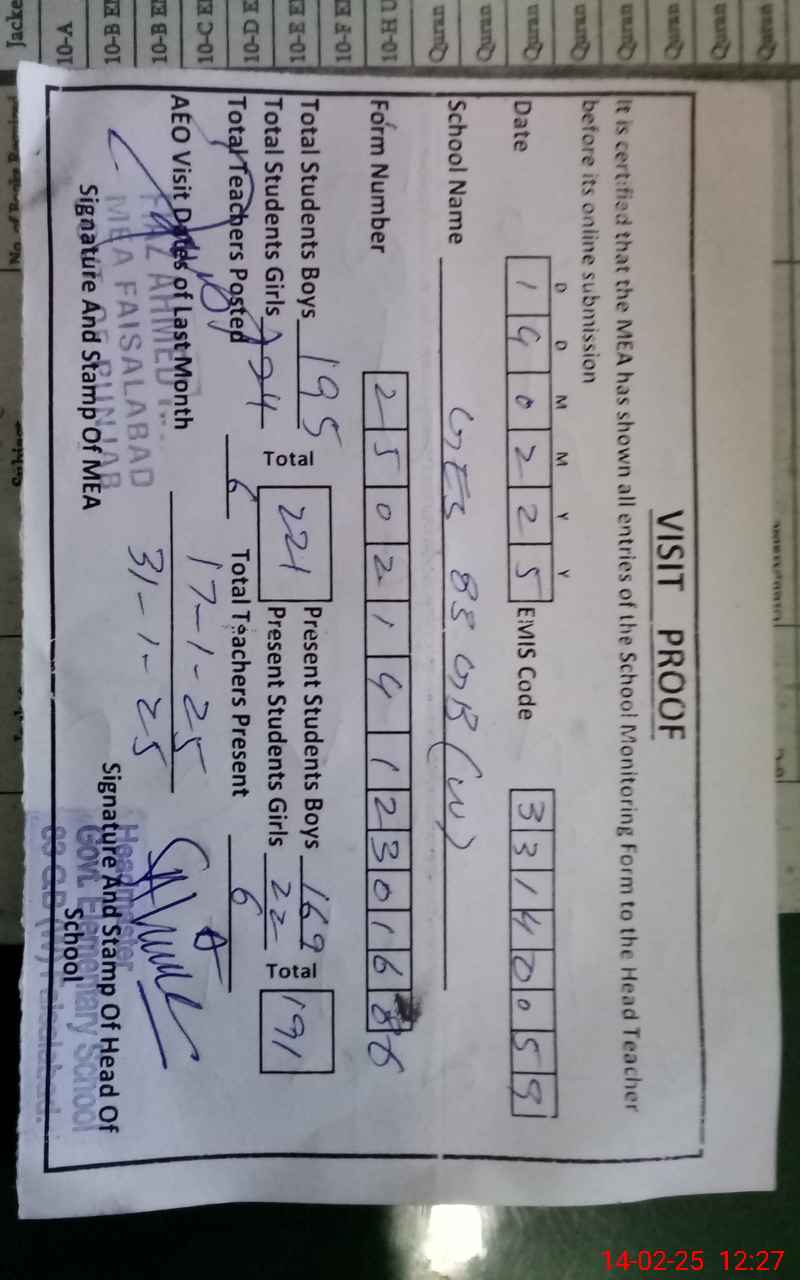 VISIT PROOF
It is certified that the MEA has shown all entries of the School Monitoring Form to the Head Teacher
before its online submission
D D M M Y Y
Date 1 4 0 2 2 5 EMIS Code 3 3 1 4 0 0 5 9
School Name GES 85 GB (W)
Form Number 2 5 0 2 1 4 1 2 3 0 1 6
Total Students Boys 195 Present Students Boys 169
Total 221 Total 191
Total Students Girls Present Students Girls 22
Total Teachers Posted 6 Total Teachers Present 6
AEO Visit Dates of Last Month 17-1-25
31-1-25
AHMED
MEA FAISALABAD
Signature And Stamp Of MEA
Headmaster
Signature And Stamp Of Head Of
Govt. Elementary School
School
14-02-25 12:27